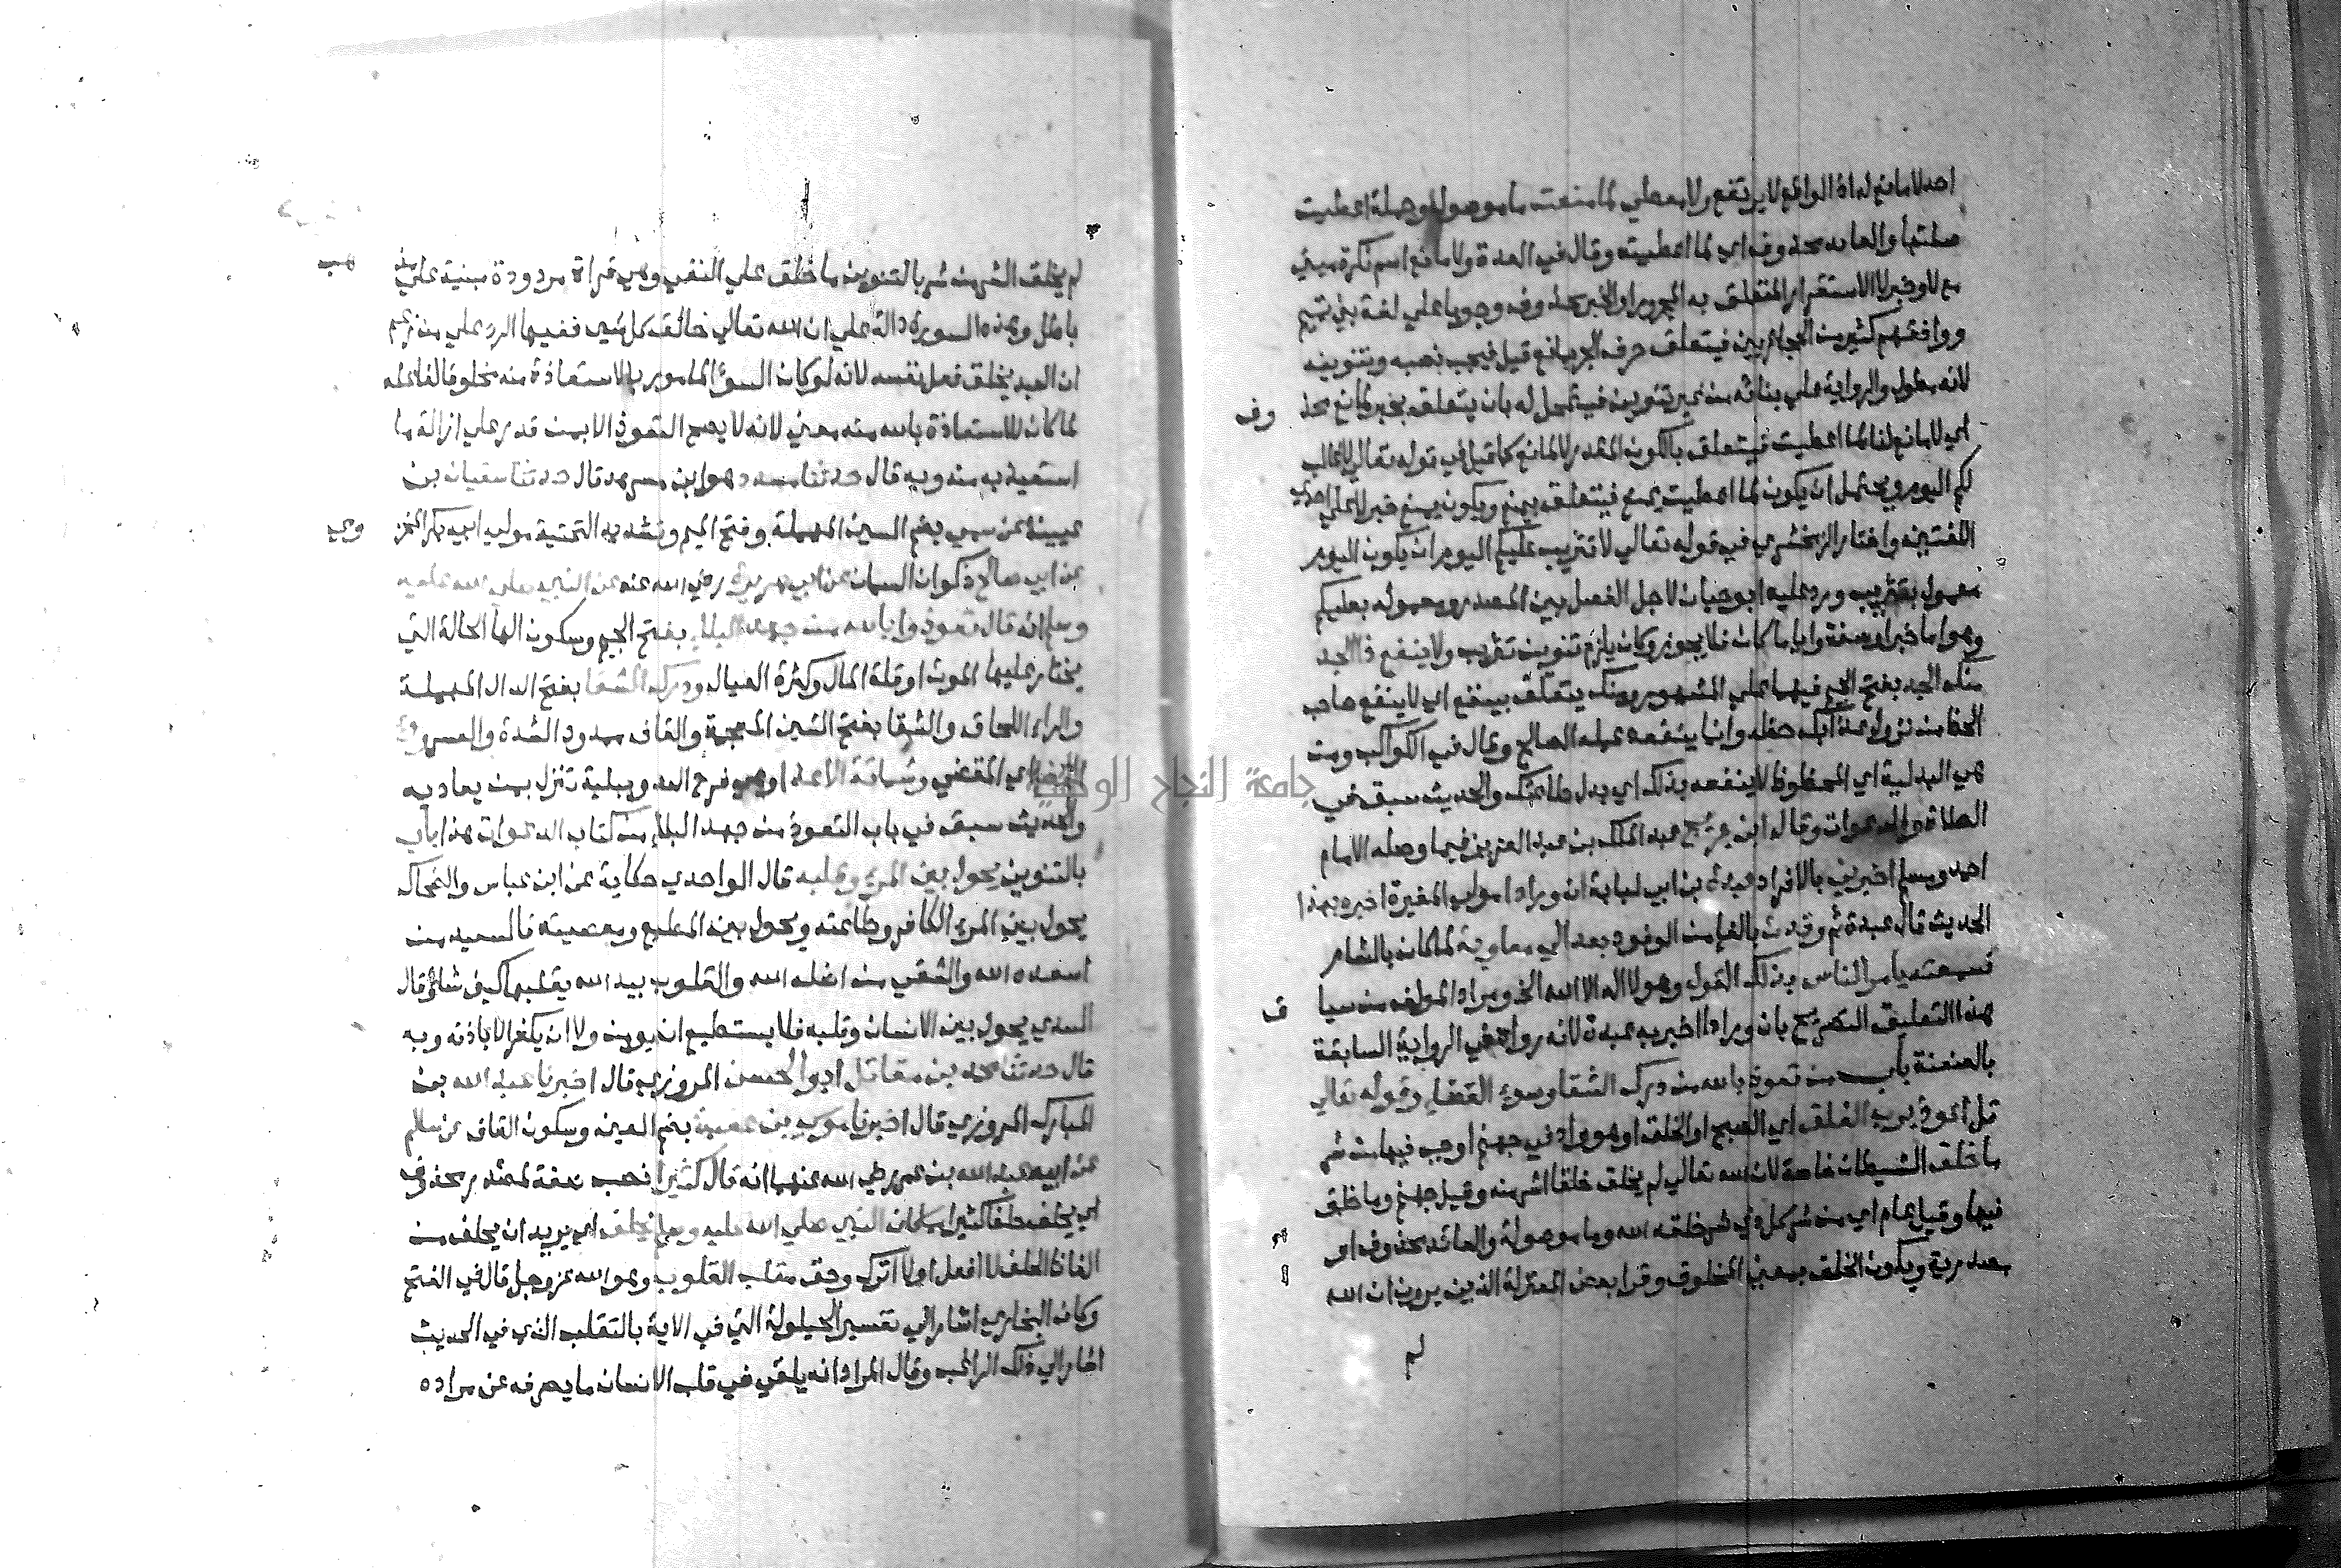 احد لا مانع له اذ الواقع لا يرتفع ولا معطي لما منعت ما موصول وجملة اعطيت
صلتها والعايد محذوف اي لما اعطيته وقال في العدة ولا مانع اسم نكرة مبني
مع لا وخبر لا الاستقرار المتعلق به المجرور او الخبر محذوف وجوبا علي لغة بني تميم
ووافقهم كثير من الحجازيين فيتعلق حرف الجر بمانع قيل فيجب نصبه وتنوينه
لانه مطول والرواية علي بنائه من غير تنوين فيتمحل له بان يتعلق بخبر لمانع محذ وف
اي لا مانع لنا لما اعطيت فيتعلق بالكون المقدر لا لمانع كما قيل في قوله تعالي لا غالب
لكم اليوم ويحتمل ان يكون لما اعطيت يمنع فيتعلق بيمنع ويكون يمنع خبر لا علي احدي
اللغتين واختار الزمخشري في قوله تعالي لا تثريب عليكم اليوم ان يكون اليوم
معمول بتثريب ورد عليه ابو حيان لاجل الفصل بين المصدر ومعموله بعليكم
وهو اما خبر او صفة وايا ما كان فلا يجوز وكان يلزم تنوين تثريب ولا ينفع ذا الجد
منك الجد بفتح الجيم فيهما علي المشهور ومنك يتعلق بينفع اي لا ينفع صاحب
الحظ من نزول عذابك حظه وانما ينفعه عمله الصالح وقال في الكواكب ومن
هي البدلية اي المحظوظ لا ينفعه بذلك اي بدل طاعتك والحديث سبق في
الصلاة والدعوات وقال ابن جريج عبد الملك بن عبد العزيز فيما وصله الامام
احمد ومسلم اخبرني بالافراد عبدة بن ابي لبابة ان ورادا مولي المغيرة اخبره بهذا
الحديث قال عبدة ثم وفدت بالفا من الوفود بعد الي معاوية لما كان بالشام
فسمعته يامر الناس بذلك القول وهو لا اله الا الله الخ ومراد المولف من سيا ق
هذا التعليق التصريح بان ورادا اخبر به عبدة لانه رواه في الرواية السابقة
بالعنعنة باب من تعوذ بالله من درك الشقا وسوء القضاء وقوله تعالي
قل اعوذ برب الفلق اي الصبح او الخلق او هو واد في جهنم او جب فيها من شر
ما خلق الشيطان خاصة لان الله تعالي لم يخلق خلقا اشر منه وقيل جهنم وما خلق
فيها وقيل عام اي من شر كل ذي شر خلقه الله وما موصولة والعائد محذوف او
مصدرية ويكون الخلق بمعني المخلوق وقرا بعض المعتزلة الذين يرون ان الله
لم
لم يخلق الشر من شر بالتنوين ما خلق علي النفي وهي قراة مردودة مبنية علي مذ هب
باطل وهذه السورة دالة علي ان الله تعالي خالق كل شي ففيها الرد علي من زعم
ان العبد يخلق فعل نفسه لانه لو كان السوء المامور بالاستعاذة منه مخلوقا لفاعله
لما كان للاستعاذة بالله منه معني لانه لا يصح التعوذ الا بمن قدر علي ازالة ما
استعيذ به منه وبه قال حدثنا مسدد هو ابن مسرهد قال حدثنا سفيان بن
عيينة عن سمي بضم السين المهملة وفتح الميم وتشديد التحتية مولي ابي بكر المخز ومي
عن ابي صالح ذكوان السمان عن ابي هريرة رضي الله عنه عن النبي صلي الله عليه
وسلم انه قال تعوذوا بالله من جهد البلاء بفتح الجيم وسكون الها الحالة التي
يختار عليها الموت او قلة المال وكثرة العيال ودرك الشقا بفتح الدال المهملة
والراء اللحاق والشقا بفتح الشين المعجمة والقاف ممدود الشدة والعسر وسوء
القضا اي المقضي وشماتة الاعداء وهو فرح العدو ببلية تنزل بمن يعاديه
والحديث سبق في باب التعوذ من جهد البلاء من كتاب الدعوات هذا باب
بالتنوين يحول بين المرء وقلبه قال الواحدي حكاية عن ابن عباس والضحاك
يحول بين المرء الكافر وطاعته ويحول بين المطيع ومعصيته فالسعيد من
اسعده الله والشقي من اضله الله والقلوب بيد الله يقلبها كيف شاء وقال
السدي يحول بين الانسان وقلبه فلا يستطيع ان يومن ولا ان يكفر الا باذنه وبه
قال حدثنا محمد بن مقاتل ابو الحسن المروزي قال اخبرنا عبد الله بن
المبارك المروزي قال اخبرنا موسي بن عقبة بضم العين وسكون القاف عن سالم
عن ابيه عبد الله بن عمر رضي الله عنهما انه قال كثيرا نصب صفة لمصدر محذوف
اي يحلف حلفا كثيرا مما كان النبي صلي الله عليه وسلم يحلف اي يريد ان يحلف من
الفاظ الحلف لا افعل او لا اترك وحق مقلب القلوب وهو الله عز وجل قال في الفتح
وكان البخاري اشار الي تفسير الحيلولة التي في الاية بالتقلب الذي في الحديث
اشار الي ذلك الراغب وقال المراد انه يلقي في قلب الانسان ما يصرفه عن مراده
جامعة النجاح الوطنية